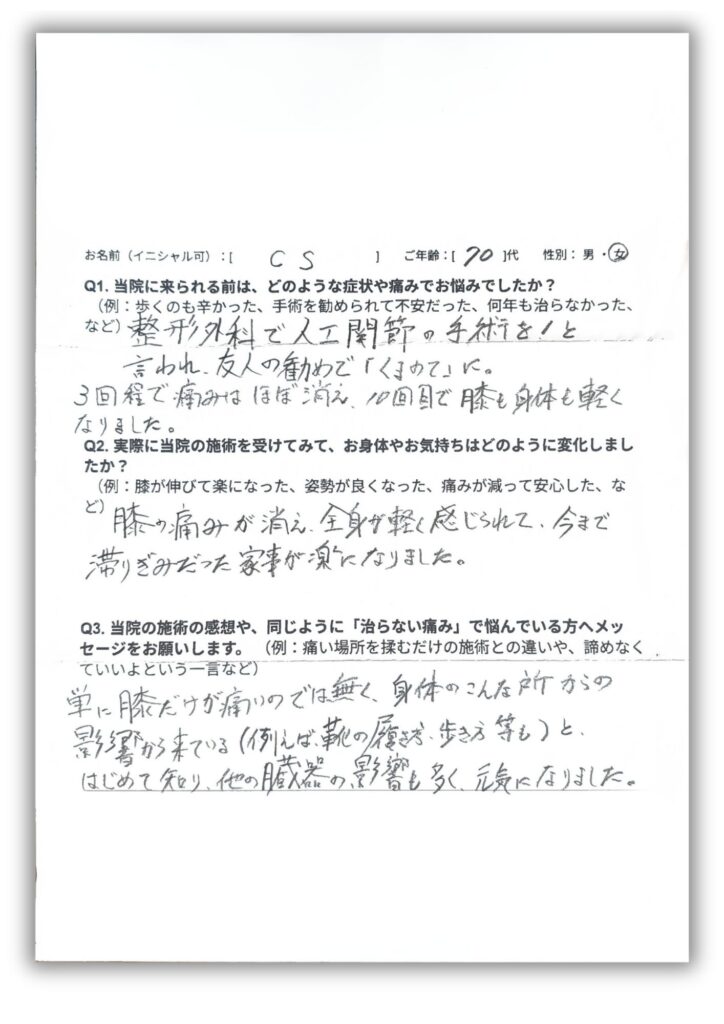 お名前（イニシャル可）：[ C S ] ご年齢：[ 70 ]代 性別： 男 ・ 女
Q1. 当院に来られる前は、どのような症状や痛みでお悩みでしたか？
（例：歩くのも辛かった、手術を勧められて不安だった、何年も治らなかった、
など）整形外科で人工関節の手術を！と
言われ、友人の勧めで「くまのて」に。
3回程で痛みはほぼ消え、10回目で膝も身体も軽く
なりました。
Q2. 実際に当院の施術を受けてみて、お身体やお気持ちはどのように変化しまし
たか？
（例：膝が伸びて楽になった、姿勢が良くなった、痛みが減って安心した、な
ど）膝の痛みが消え、全身が軽く感じられて、今まで
滞りぎみだった家事が楽になりました。
Q3. 当院の施術の感想や、同じように「治らない痛み」で悩んでいる方へメッ
セージをお願いします。（例：痛い場所を揉むだけの施術との違いや、諦めなく
ていいよという一言など）
単に膝だけが痛いのでは無く、身体のこんな所からの
影響から来ている（例えば、靴の履き方、歩き方 等も）と、
はじめて知り、他の臓器の影響も多く、元気になりました。